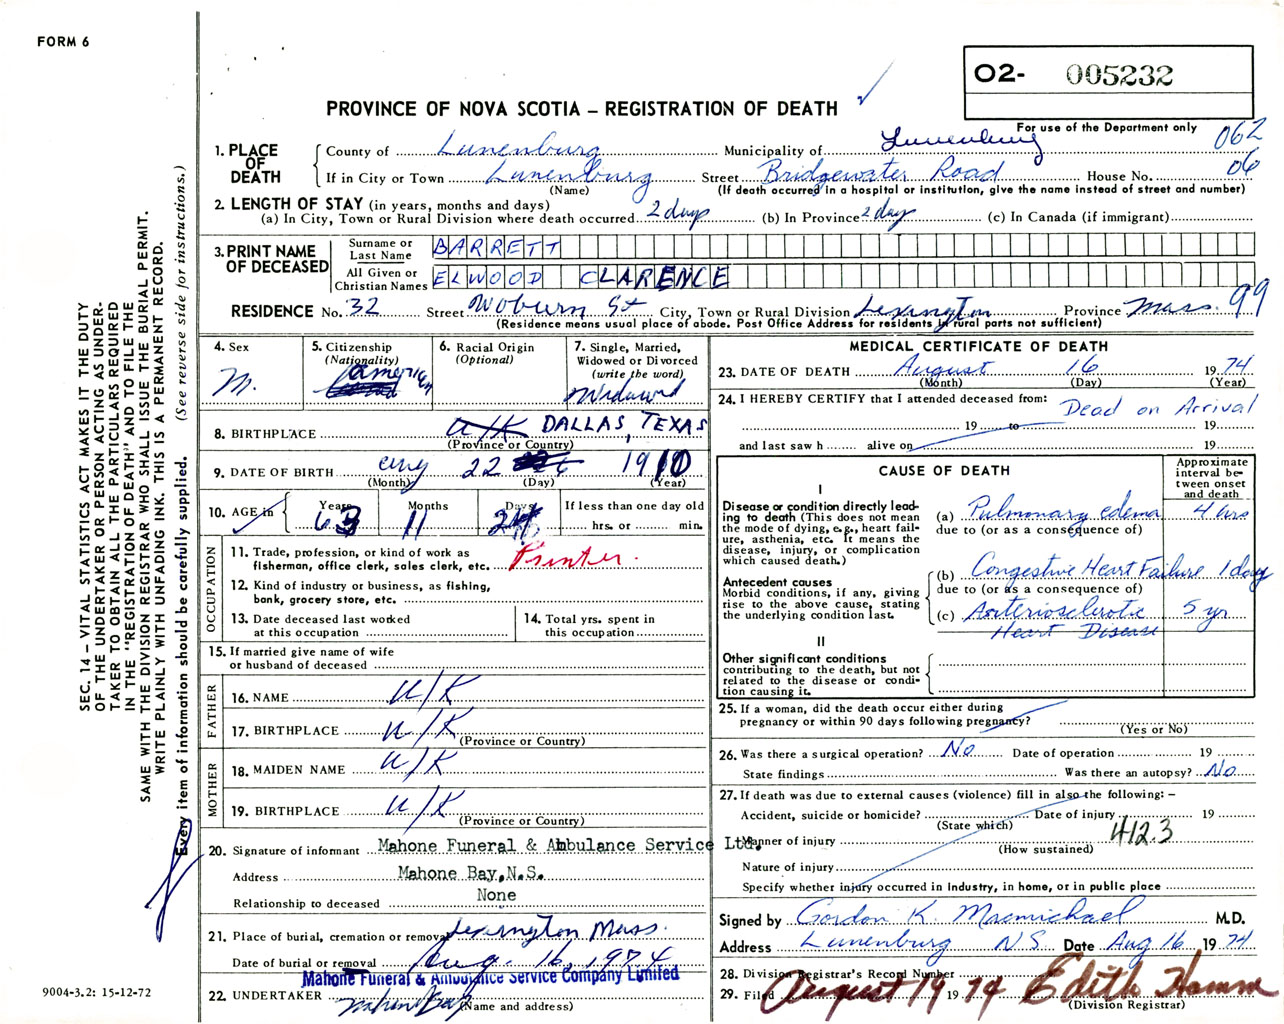 FORM 6
O2- 005232
PROVINCE OF NOVA SCOTIA – REGISTRATION OF DEATH ✓
For use of the Department only
062
1. PLACE OF DEATH
County of Lunenburg Municipality of Lunenburg
If in City or Town Lunenburg Street Bridgewater Road House No. 06
(Name) (If death occurred in a hospital or institution, give the name instead of street and number)
2. LENGTH OF STAY (in years, months and days)
(a) In City, Town or Rural Division where death occurred 2 days (b) In Province 2 days (c) In Canada (if immigrant)
3. PRINT NAME OF DECEASED
Surname or Last Name BARRETT
All Given or Christian Names ELWOOD CLARENCE
RESIDENCE No. 32 Street Woburn St City, Town or Rural Division Lexington Province Mass. 99
(Residence means usual place of abode. Post Office Address for residents in rural parts not sufficient)
4. Sex
M.
5. Citizenship
(Nationality)
American
6. Racial Origin
(Optional)
7. Single, Married, Widowed or Divorced
(write the word)
Widowed
8. BIRTHPLACE U/K DALLAS, TEXAS
(Province or Country)
9. DATE OF BIRTH 22 1910
(Month) (Day) (Year)
10. AGE in
Years Months Days
63 11
If less than one day old
hrs. or min.
OCCUPATION
11. Trade, profession, or kind of work as fisherman, office clerk, sales clerk, etc. Printer.
12. Kind of industry or business, as fishing, bank, grocery store, etc.
13. Date deceased last worked at this occupation
14. Total yrs. spent in this occupation
15. If married give name of wife or husband of deceased
FATHER
16. NAME U/K
17. BIRTHPLACE U/K
(Province or Country)
MOTHER
18. MAIDEN NAME U/K
19. BIRTHPLACE U/K
(Province or Country)
20. Signature of informant Mahone Funeral & Ambulance Service Ltd.
Address Mahone Bay, N.S.
Relationship to deceased None
21. Place of burial, cremation or removal Lexington Mass.
Date of burial or removal Aug. 16, 1974
Mahone Funeral & Ambulance Service Company Limited
22. UNDERTAKER Mahone Bay
(Name and address)
MEDICAL CERTIFICATE OF DEATH
23. DATE OF DEATH August 16 1974
(Month) (Day) (Year)
24. I HEREBY CERTIFY that I attended deceased from: Dead on Arrival
19 to 19
and last saw h alive on 19
CAUSE OF DEATH
Approximate interval between onset and death
I
Disease or condition directly leading to death (This does not mean the mode of dying, e.g., heart failure, asthenia, etc. It means the disease, injury, or complication which caused death.)
(a) Pulmonary edema 4 hrs
due to (or as a consequence of)
Antecedent causes
Morbid conditions, if any, giving rise to the above cause, stating the underlying condition last.
(b) Congestive Heart Failure 1 day
due to (or as a consequence of)
(c) Arteriosclerotic 5 yr
Heart Disease
II
Other significant conditions
contributing to the death, but not related to the disease or condition causing it.
25. If a woman, did the death occur either during pregnancy or within 90 days following pregnancy?
(Yes or No)
26. Was there a surgical operation? No Date of operation 19
State findings Was there an autopsy? No
27. If death was due to external causes (violence) fill in also the following: –
Accident, suicide or homicide? Date of injury 19
(State which)
412.3
Manner of injury
(How sustained)
Nature of injury
Specify whether injury occurred in Industry, in home, or in public place
Signed by Gordon K. Macmichael M.D.
Address Lunenburg N S Date Aug 16 1974
28. Division Registrar's Record Number
29. Filed August 19 1974 Edith Hamm
(Division Registrar)
SEC. 14 – VITAL STATISTICS ACT MAKES IT THE DUTY
OF THE UNDERTAKER OR PERSON ACTING AS UNDER-
TAKER TO OBTAIN ALL THE PARTICULARS REQUIRED
IN THE "REGISTRATION OF DEATH" AND TO FILE THE
SAME WITH THE DIVISION REGISTRAR WHO SHALL ISSUE THE BURIAL PERMIT.
WRITE PLAINLY WITH UNFADING INK. THIS IS A PERMANENT RECORD.
Every item of information should be carefully supplied. (See reverse side for instructions.)
9004-3.2: 15-12-72